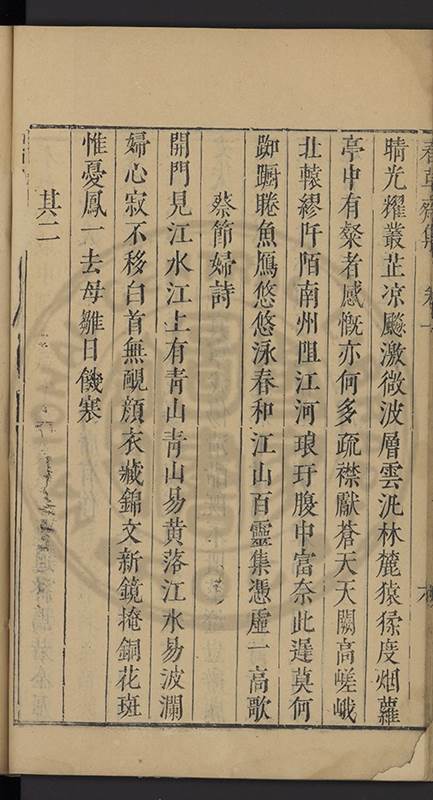 春草齋集 卷一
晴光耀叢芷凉飇激微波層雲汎林麓猿猱度烟蘿
亭中有粲者感慨亦何多疏襟獻蒼天天闕高嵯峨
北轅繆阡陌南州阻江河琅玕腹中富奈此遲莫何
踟蹰睠魚鴈悠悠泳春和江山百靈集憑虛一高歌
蔡節婦詩
開門見江水江上有青山青山易黄落江水易波瀾
婦心寂不移白首無靦顔衣藏錦文新鏡掩銅花斑
惟憂鳳一去母雛日饑寒
其二